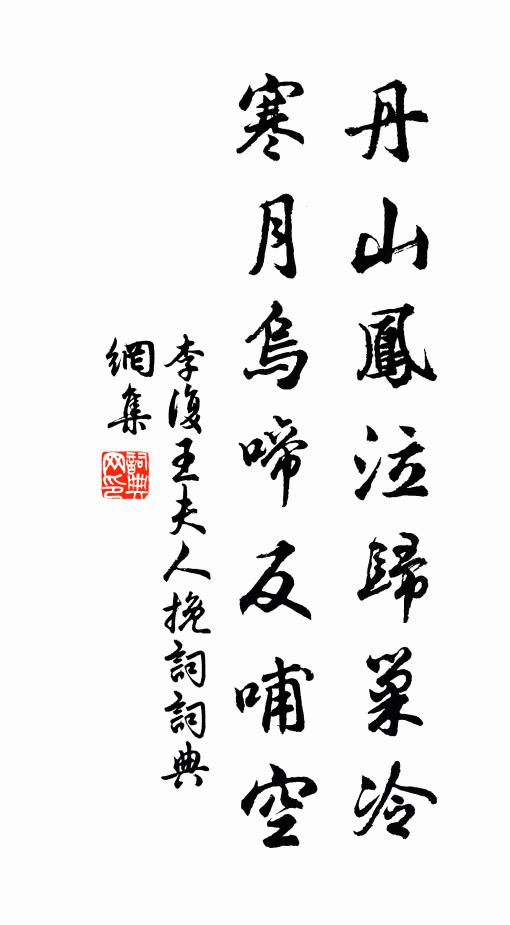 丹山鳳泣歸巢冷
寒月烏啼反哺空
李復王夫人挽詞詞典
網集
詞典網印